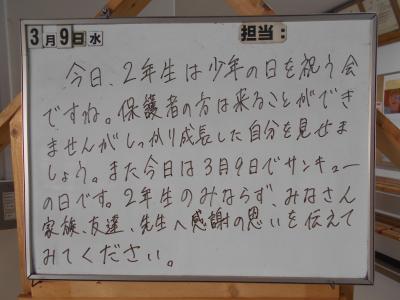 3月9日水
担当:
今日、2年生は少年の日を祝う会
ですね。保護者の方は来ることができ
ませんがしっかり成長した自分を見せま
しょう。また今日は3月9日でサンキュー
の日です。2年生のみならず、みなさん
家族、友達、先生へ感謝の思いを伝えて
みてください。